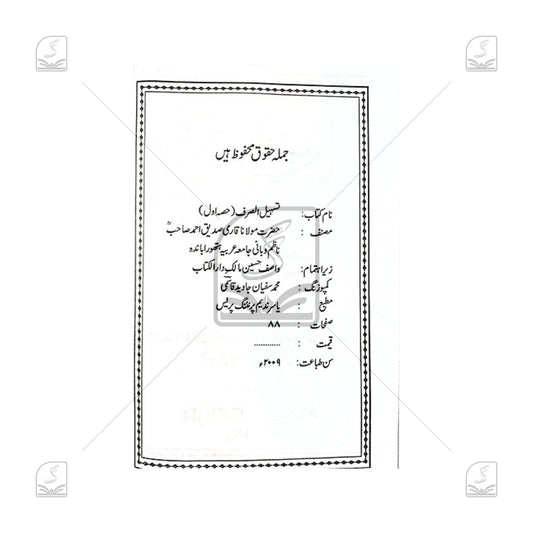 جملہ حقوق محفوظ ہیں
نام کتاب : تسہیل الصرف (حصہ اول)
مصنف : حضرت مولانا قاری صدیق احمد صاحبؒ
ناظم و بانی جامعہ عربیہ ہتھورا باندہ
زیر اہتمام : واصف حسین مالک دارالکتاب
کمپوزنگ : محمد سفیان جاوید قاسمی
مطبع : یاسر ندیم پرنٹنگ پریس
صفحات : ۸۸
قیمت : ............
سن طباعت : ۲۰۰۹ء